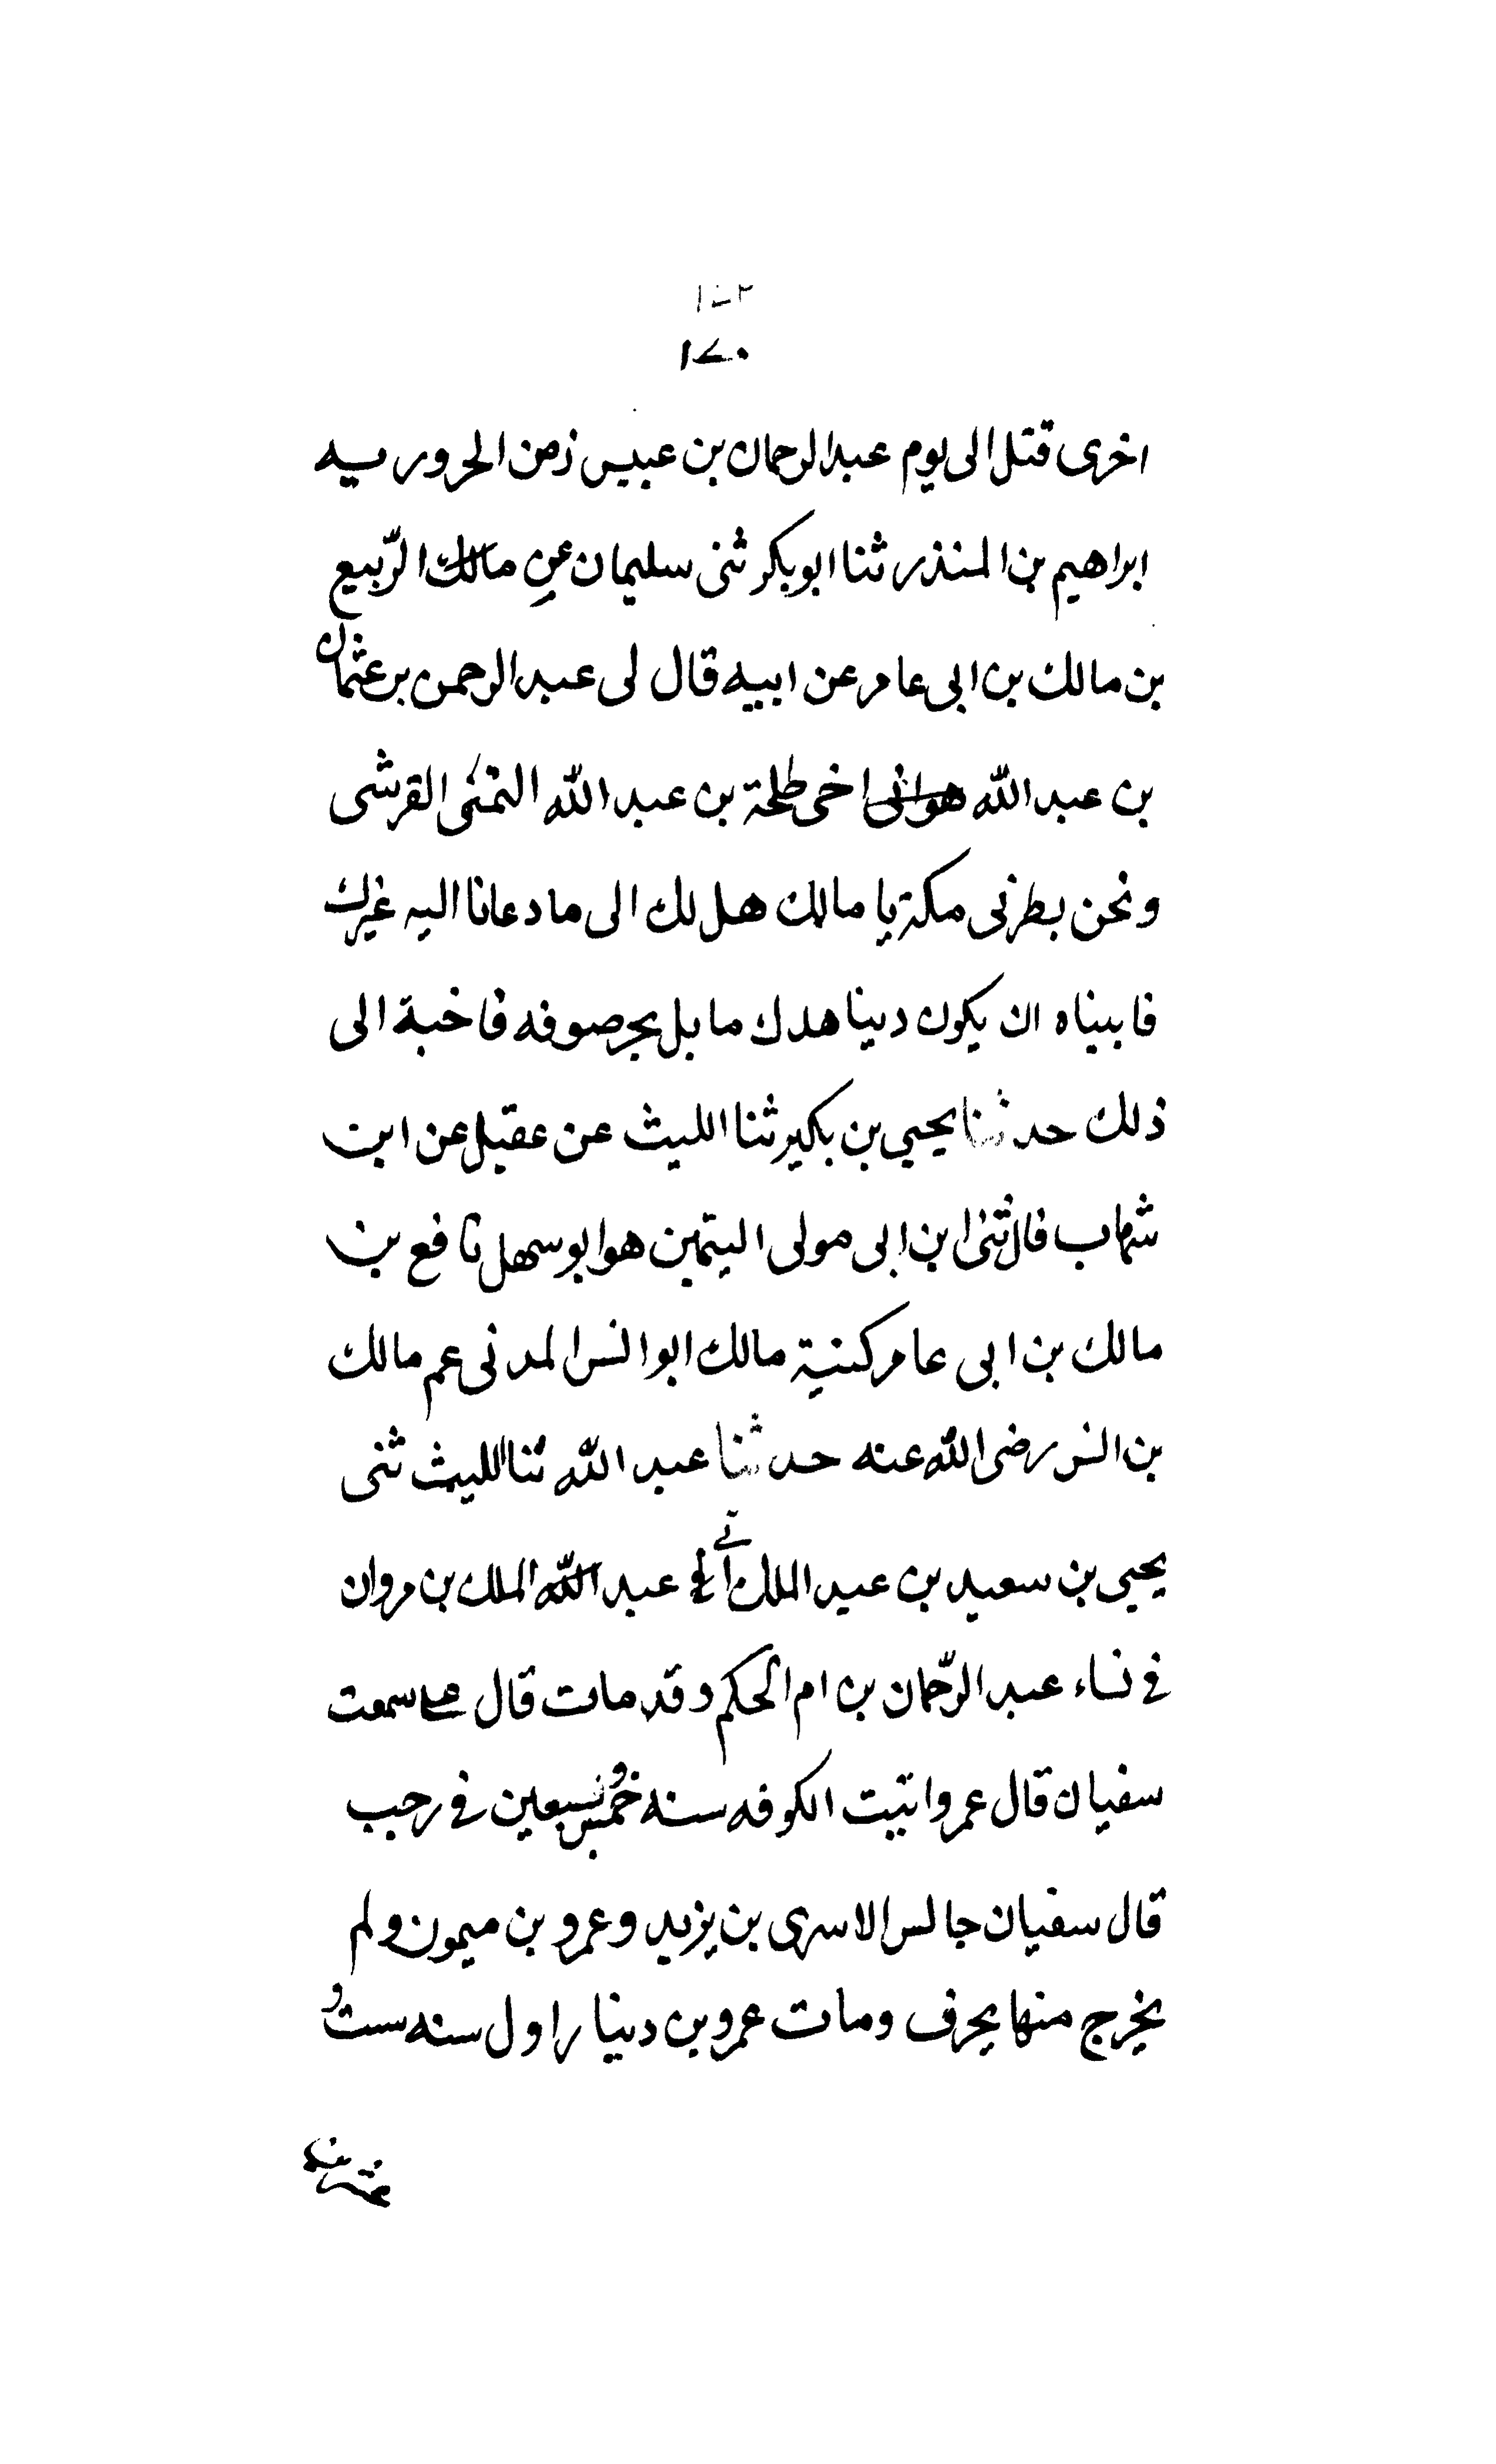 ١٧٠
اخرى قتل الى يوم عبد الرحمان بن عبيس زمن الحروريه
ابراهيم بن المنذر ثنا ابو بكر ثنى سليمان عن مالك الرّبيع
بن مالك بن ابى عامر عن ابيه قال لى عبد الرحمن بن عثمان
بن عبد الله اخى طلحة بن عبد الله التمى القرشى
ونحن بطرنى مكة يا مالك هل لك الى ما دعانا اليه غيرك
فابيناه ان يكون دينا هدك ما بل بحر صوفه فاخبة الى
ذلك حدثنا يحيى بن بكير ثنا الليث عن عقيل عن ابن
شهاب قال ثنى ابن ابى مولى اليتمين هو ابو سهل نافع بن
مالك بن ابى عامر كنية مالك ابو انس المدنى عم مالك
بن انس رضى الله عنه حدثنا عبد الله ثنا الليث ثنى
يحيى بن سعيد بن عبد الملك عبد الله الملك بن مروان
فى نساء عبد الرّحمان بن ام الحكم وقد مات قال سمعت
سفيان قال عمرو اتيت الكوفه سنه خمس وسبعين فى رجب
قال سفيان جالس الاسرى بن يزيد وعمرو بن ميمون ولم
يخرج منها بحرف ومات عمرو بن دينار اول سنه ست و
عشرين